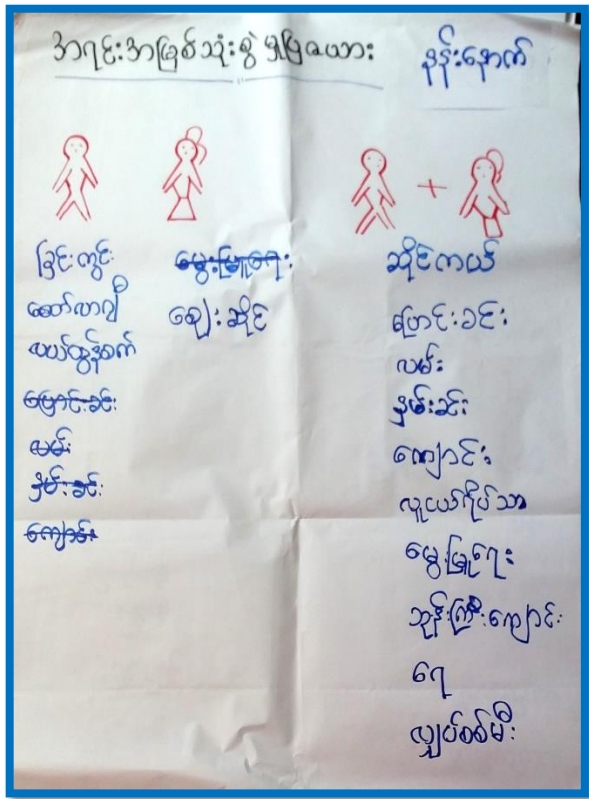 အရင်းအမြစ်သုံးစွဲမှုပြဇယား
နန်းနောက်
ခြင်းကွင်း
ထော်လာဂျီ
လယ်ထွန်စက်
ပြောင်းခင်း
လမ်း
နှမ်းခင်း
ကျောင်း
မွေးမြူရေး
ဈေးဆိုင်
+
ဆိုင်ကယ်
ပြောင်းခင်း
လမ်း
နှမ်းခင်း
ကျောင်း
လူငယ်ရိပ်သာ
မွေးမြူရေး
ဘုန်းကြီးကျောင်း
ရေ
လျှပ်စစ်မီး